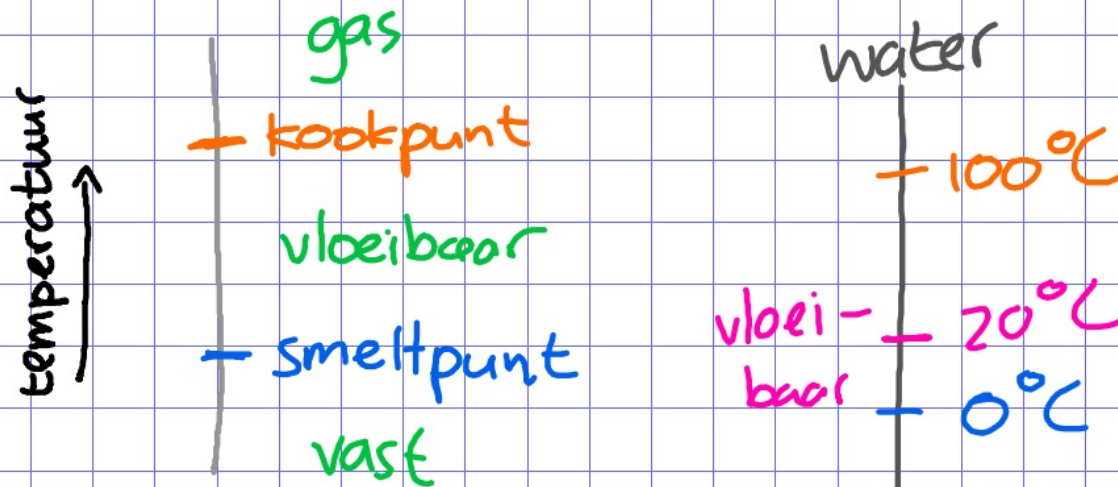 temperatuur
gas
kookpunt
vloeibaar
smeltpunt
vast
water
100°C
20°C
vloei-
baar
0°C